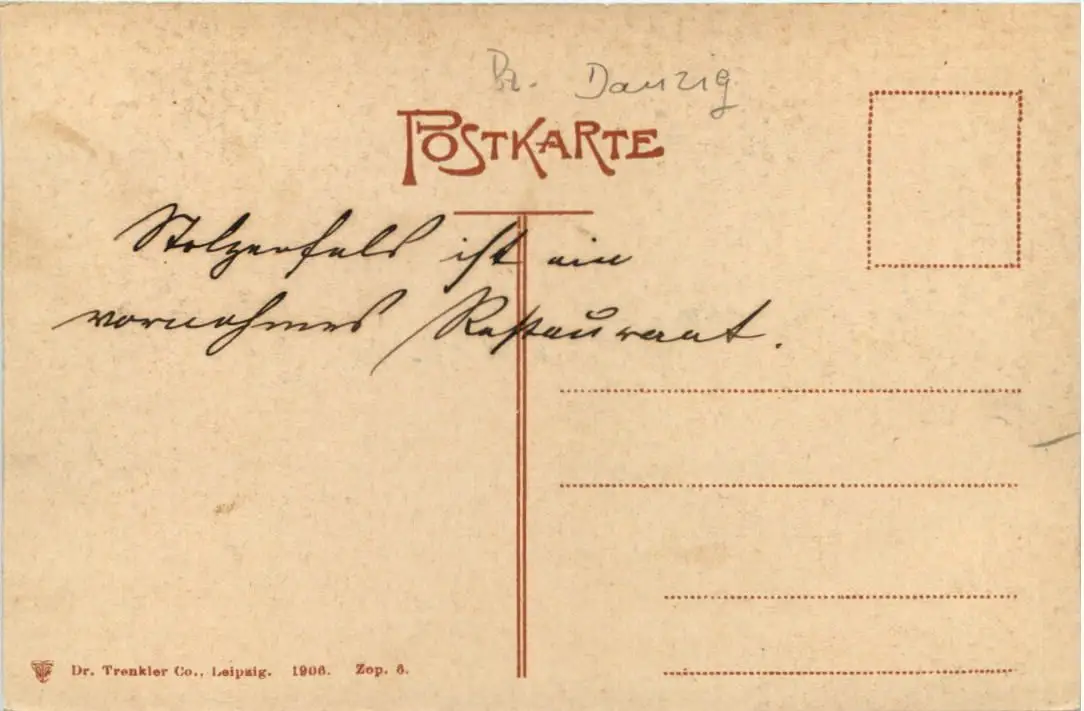 Bz. Danzig
POSTKARTE
Stolzenfels ist ein
vornehmes Restaurant.
Dr. Trenkler Co., Leipzig. 1906. Zop. 6.